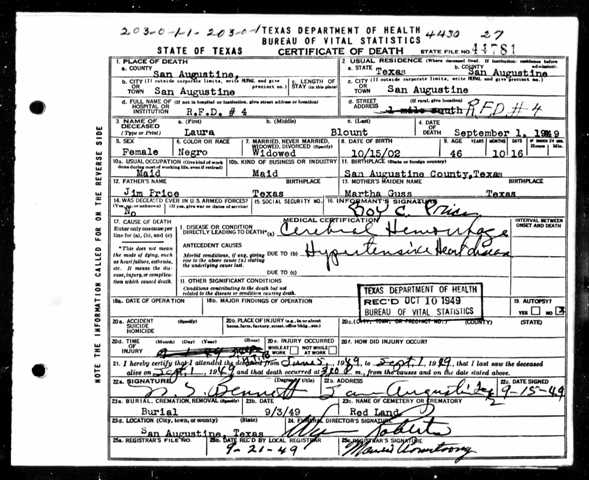 203-0-1-1-203-0-1 TEXAS DEPARTMENT OF HEALTH 4430 27
BUREAU OF VITAL STATISTICS
STATE OF TEXAS CERTIFICATE OF DEATH STATE FILE NO. 44781
1. PLACE OF DEATH
a. COUNTY San Augustine,
2. USUAL RESIDENCE (Where deceased lived. If institution: residence before admission).
a. STATE Texas b. COUNTY San Augustine
b. CITY (If outside corporate limits, write RURAL and give precinct no.) OR TOWN San Augustine
c. LENGTH OF STAY (in this place)
c. CITY (If outside corporate limits, write RURAL and give precinct no.) OR TOWN San Augustine
d. FULL NAME OF (If not in hospital or institution, give street address or location) HOSPITAL OR INSTITUTION R.F.D. # 4
d. STREET ADDRESS (If rural, give location) 1 mile south R.F.D # 4
3. NAME OF DECEASED (Type or Print) a. (First) Laura b. (Middle) c. (Last) Blount
4. DATE OF DEATH September 1, 1949
5. SEX Female
6. COLOR OR RACE Negro
7. MARRIED, NEVER MARRIED, WIDOWED, DIVORCED (Specify) Widowed
8. DATE OF BIRTH 10/15/02
9. AGE YEARS 46 MONTHS 10 DAYS 16
10a. USUAL OCCUPATION (Give kind of work done during most of working life, even if retired) Maid
10b. KIND OF BUSINESS OR INDUSTRY Maid
11. BIRTHPLACE (State or foreign country) San Augustine County, Texas
12. FATHER'S NAME Jim Price BIRTHPLACE Texas
13. MOTHER'S MAIDEN NAME Martha Guss BIRTHPLACE Texas
14. WAS DECEASED EVER IN U.S. ARMED FORCES? (Yes, no, or unknown) (If yes, give war or dates of service) No
15. SOCIAL SECURITY NO.
16. INFORMANT'S SIGNATURE Roy C. Price
17. CAUSE OF DEATH
Enter only one cause per line for (a), (b), and (c)
*This does not mean the mode of dying, such as heart failure, asthenia, etc. It means the disease, injury, or complication which caused death.
MEDICAL CERTIFICATION
INTERVAL BETWEEN ONSET AND DEATH
I DISEASE OR CONDITION DIRECTLY LEADING TO DEATH*(a) Cerebral Hemorrhage
ANTECEDENT CAUSES
Morbid conditions, if any, giving rise to the above cause (a) stating the underlying cause last.
DUE TO (b) Hypertensive Heart disease
DUE TO (c)
II OTHER SIGNIFICANT CONDITIONS
Conditions contributing to the death but not related to the disease or condition causing death.
TEXAS DEPARTMENT OF HEALTH
REC'D OCT 10 1949
BUREAU OF VITAL STATISTICS
18a. DATE OF OPERATION
18b. MAJOR FINDINGS OF OPERATION
19. AUTOPSY? YES NO
20a. ACCIDENT SUICIDE HOMICIDE (Specify)
20b. PLACE OF INJURY (e.g., in or about home, farm, factory, street, office bldg., etc.)
(COUNTY) (STATE)
20d. TIME OF INJURY (Month) (Day) (Year) (Hour)
20e. INJURY OCCURRED WHILE AT WORK NOT WHILE AT WORK
20f. HOW DID INJURY OCCUR?
21. I hereby certify that I attended the deceased from June 5, 1949 to Sept. 1, 1949, that I last saw the deceased
alive on Sept. 1, 1949 and that death occurred at m., from the causes and on the date stated above.
22a. SIGNATURE Bennett (Degree or title)
22b. ADDRESS San Augustine
22c. DATE SIGNED 9-15-49
23a. BURIAL, CREMATION, REMOVAL (Specify) Burial
23b. DATE 9/3/49
23c. NAME OF CEMETERY OR CREMATORY Red Land
23d. LOCATION (City, town, or county) (State) San Augustine, Texas
24. FUNERAL DIRECTOR'S SIGNATURE Roberts
25a. REGISTRAR'S FILE NO.
25b. DATE REC'D BY LOCAL REGISTRAR 9-21-49
25c. REGISTRAR'S SIGNATURE Armstrong
NOTE THE INFORMATION CALLED FOR ON THE REVERSE SIDE